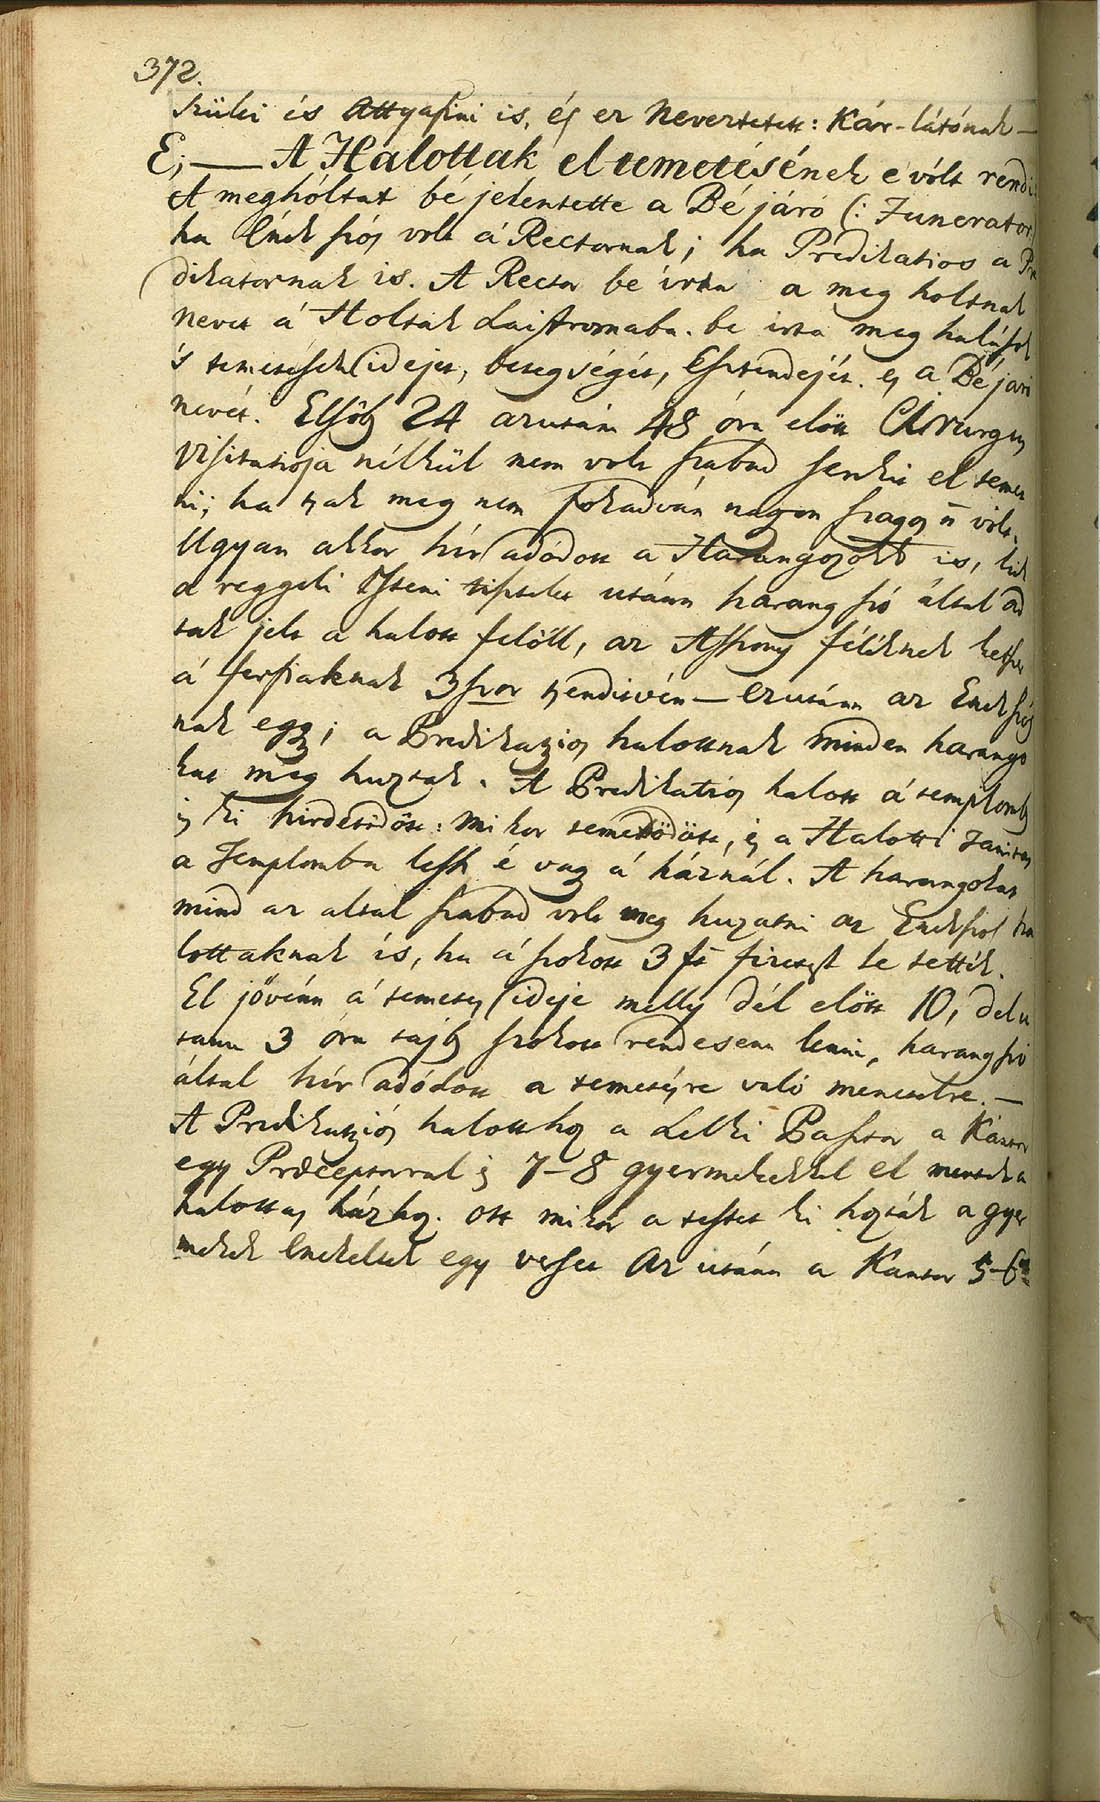 372.
szülei és Attyafiai is, és ez Neveztetett: Kár-látónak —
E; — A Halottak el temetésének e vólt rendi
A meghóltat bé jelentette a Bé járó (: Funerator
ha Ének szós volt á Rectornak; ha Prédikatios a Pre
dikatornak is. A Rector be írta a meg holtnak
Nevét á Holtak Laistromaba. be irta meg halások
's temetések idejét, betegségét, Esztendejét. és a Bé járó
nevét. Elsőb 24 azután 48 óra előtt Chirurgus
Visitatioja nélkül nem volt szabad senkit el temet
ni; ha tsak meg nem fokadván nagyon szagos ū vólt.
Ugyan akkor hír adódott a Harangozónak is, kik
a reggeli Isteni tisztelet utánn harang szó által ad
tak jelt a halott felöll, az Asszony féléknek kétszer
á ferfiaknak 3szor tsenditvén — ezutánn az Enek szós
nak egyg; a Predikatziós halottnak minden harango
kat meg huztak. A Predikatiós halott á templomb
is ki hirdetődött: mikor temetődött, és a Halotti Tanitás
a Templomba lesz é vagy á háznál. A harangokat
mind az altal szabad volt meg huzatni az Enekszos ha
lottaknak is, ha á szokott 3 ft fizetést le tették.
El jővénn á temetés ideje melly dél előtt 10, delu
tann 3 óra tájb szokott rendesenn lenni, harang szó
által hír adódott a temetésre való menetelre. —
A Predikatziós halotthoz a Lelki Pásztor a Kántor
egy Præceptorral is 7–8 gyermekekkel el mentek a
halottas házhoz. ott mikor a testet ki hozták a gyer
mekek énekeltek egy verset Az utánn a Kantor 5–6